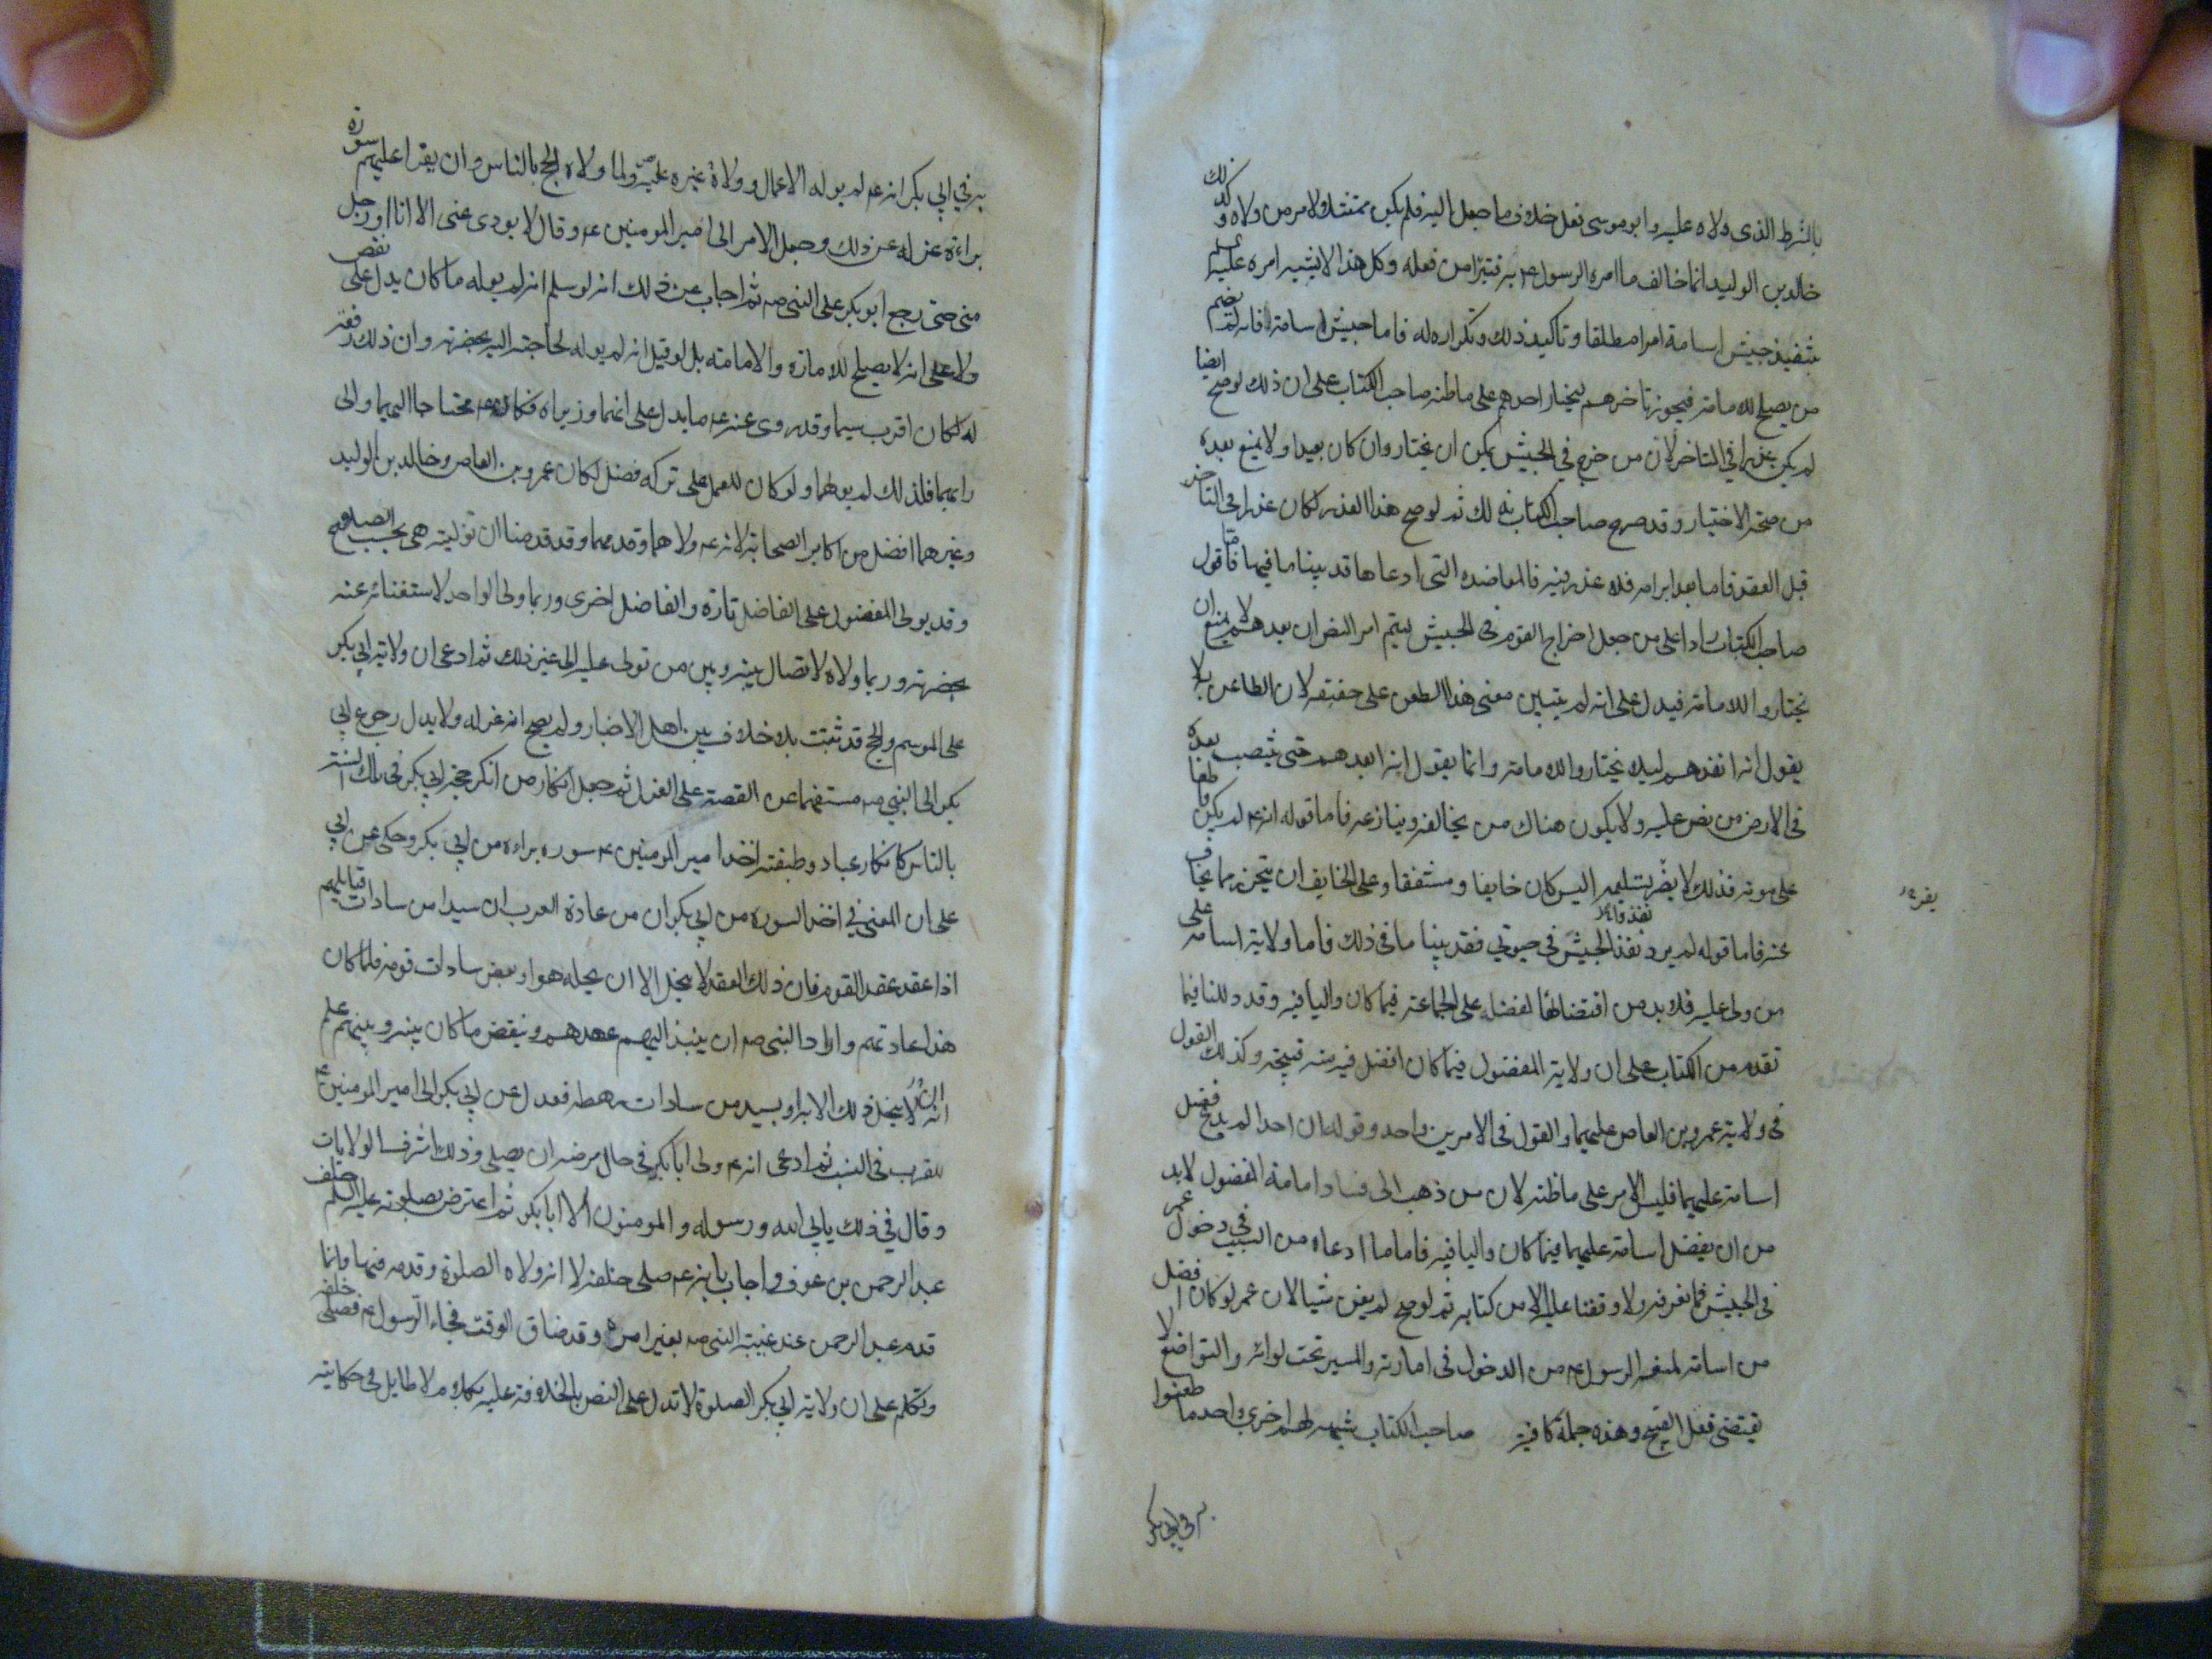 بالشرط الذى ولاه عليه وابو موسى فعل خلاف ما جعل اليه فلم يكن ممتثلا لامر من ولاه وكذلك
خالد بن الوليد انما خالف ما امره الرسول ع به فتبرأ من فعله وكل هذا لا يشبه امره عليه السلم
بتنفيذ جيش اسامة امرا مطلقا وتاكيد ذلك وتكراره له فاما جيش اسامة فانه لم يضم
من يصلح للامامة فيجوز تاخرهم ليختار احدهم على ما ظنه صاحب الكتاب على ان ذلك لو صح ايضا
لم يكن عذرا في التاخر لان من خرج في الجيش يمكن ان يختار وان كان بعيدا ولا يمنع بعده
من صحة الاختيار وقد صرح صاحب الكتاب بذلك ثم لو صح هذا العذر لكان عذرا في التاخر
قبل العقد فاما بعد ابرامه فلا عذر فيه فالمعاضدة التى ادعاها قد بينا ما فيها فاما قول
صاحب الكتاب رادا على من جعل اخراج القوم في الجيش ليتم امر النص ان بعدهم لا يمنع ان
يختاروا للامامة فيدل على انه لم يتبين معنى هذا الطعن على حقيقته لان الطاعن به لا
يقول انه انفذهم لئلا يختاروا للامامة وانما يقول انه ابعدهم حتى ينتصب بعده
فى الارض من نص عليه ولا يكون هناك من يخالفه وينازعه فاما قوله انه ع لم يكن قاطعا
على موته فذلك لا يضر تسليمه اليس كان خايفا ومشفقا وعلى الخايف ان يتحرز مما يخاف
يفر
نفذوا
عنه فاما قوله لم يرد نفذ الجيش في حيوتي فقد بينا ما فى ذلك فاما ولاية اسامة على
من ولى عليه فلا بد من اقتضائها لفضله على الجماعة فيما كان واليا فيه وقد دللنا فيما
تقدم من الكتاب على ان ولاية المفضول فيما كان افضل فيه منه قبيحة وكذلك القول
فى ولاية عمرو بن العاص عليهما والقول فى الامرين واحد وقوله ان احدا لم يدع فضل
اسامة عليهما فليس الامر على ما ظنه لان من ذهب الى فساد امامة المفضول لا بد
من ان يفضل اسامة عليهما فيما كان واليا فيه فاما ما ادعاه من السبب في دخول عمر
فى الجيش فما نعرفه ولا وقفنا عليه الا من كتابه ثم لو صح لم يغن شيا لان عمر لو كان افضل
من اسامة لمنعه الرسول ع من الدخول في امارته والمسير تحت لوائه والتواضع لا
يقتضى فعل القبيح وهذه جملة كافية صاحب الكتاب شبهة لهم اخرى واحد ما طعنوا
به في ابي بكر
به في ابي بكر انه ع لم يوله الاعمال وولاة غيره عليه ولما ولاه الحج بالناس وان يقرا عليهم سورة
براءة عزله عن ذلك وجعل الامر الى امير المومنين ع وقال لا يودى عنى الا انا او رجل
منى حتى رجع ابو بكر على النبي ص ثم اجاب عن ذلك انه لو سلم انه لم يوله ما كان يدل على نقص
ولا على انه لا يصلح للامارة والامامة بل لو قيل انه لم يوله لحاجته اليه بحضرته وان ذلك رفعة
له لكان اقرب سيما وقد روى عنه ع ما يدل على انهما وزيراه فكان ع محتاجا اليهما والى
رايهما فلذلك لم يولهما ولو كان للعمل على تركه فضل لكان عمرو بن العاص وخالد بن الوليد
وغيرهما افضل من اكابر الصحابة لانه ع ولاهما وقدمهما وقد قدمنا ان توليته هى بحسب الصلاح
وقد يولى المفضول على الفاضل تارة والفاضل اخرى وربما ولى الواحد لاستغنائه عنه
بحضرته وربما ولاه لاتصال بينه وبين من تولى عليه الى غير ذلك ثم ادعى ان ولاية ابي بكر
على الموسم والحج قد ثبتت بلا خلاف بين اهل الاخبار ولم يصح انه عزله ولا يدل رجوع ابي
بكر الى النبي ص مستفهما عن القصة على العزل ثم جعل انكار من انكر حج ابي بكر في تلك السنة
بالناس كانكار عباد وطبقته اخذ امير المومنين ع سورة براءة من ابي بكر وحكى عن ابي
على ان المعنى في اخذ السورة من ابي بكر ان من عادة العرب ان سيدا من سادات قبايلهم
اذا عقد عقد القوم فان ذلك العقد لا ينحل الا ان يحله هو او بعض سادات قومه فلما كان
هذا عادتهم واراد النبي ص ان ينبذ اليهم عهدهم وينقض ما كان بينه وبينهم علم
انه لا ينحل ذلك الا به او بسيد من سادات رهطه فعدل عن ابي بكر الى امير المومنين ع
للقرب فى النسب ثم ادعى انه ع ولى ابا بكر في حال مرضه ان يصلى وذلك اشرف الولايات
وقال في ذلك يابي الله ورسوله والمومنون الا ابا بكر ثم اعترض بصلوته عليه السلم خلف
عبد الرحمن بن عوف واجاب بانه ع صلى خلفه لا انه ولاه الصلوة وقدمه فيها وانما
قدم عبد الرحمن عند غيبة النبي ص بغير امره وقد ضاق الوقت فجاء الرسول ع فصلى خلفه
وتكلم على ان ولاية ابي بكر الصلوة لا تدل على النص بالخلافة عليه بكلام لا طايل في حكايته